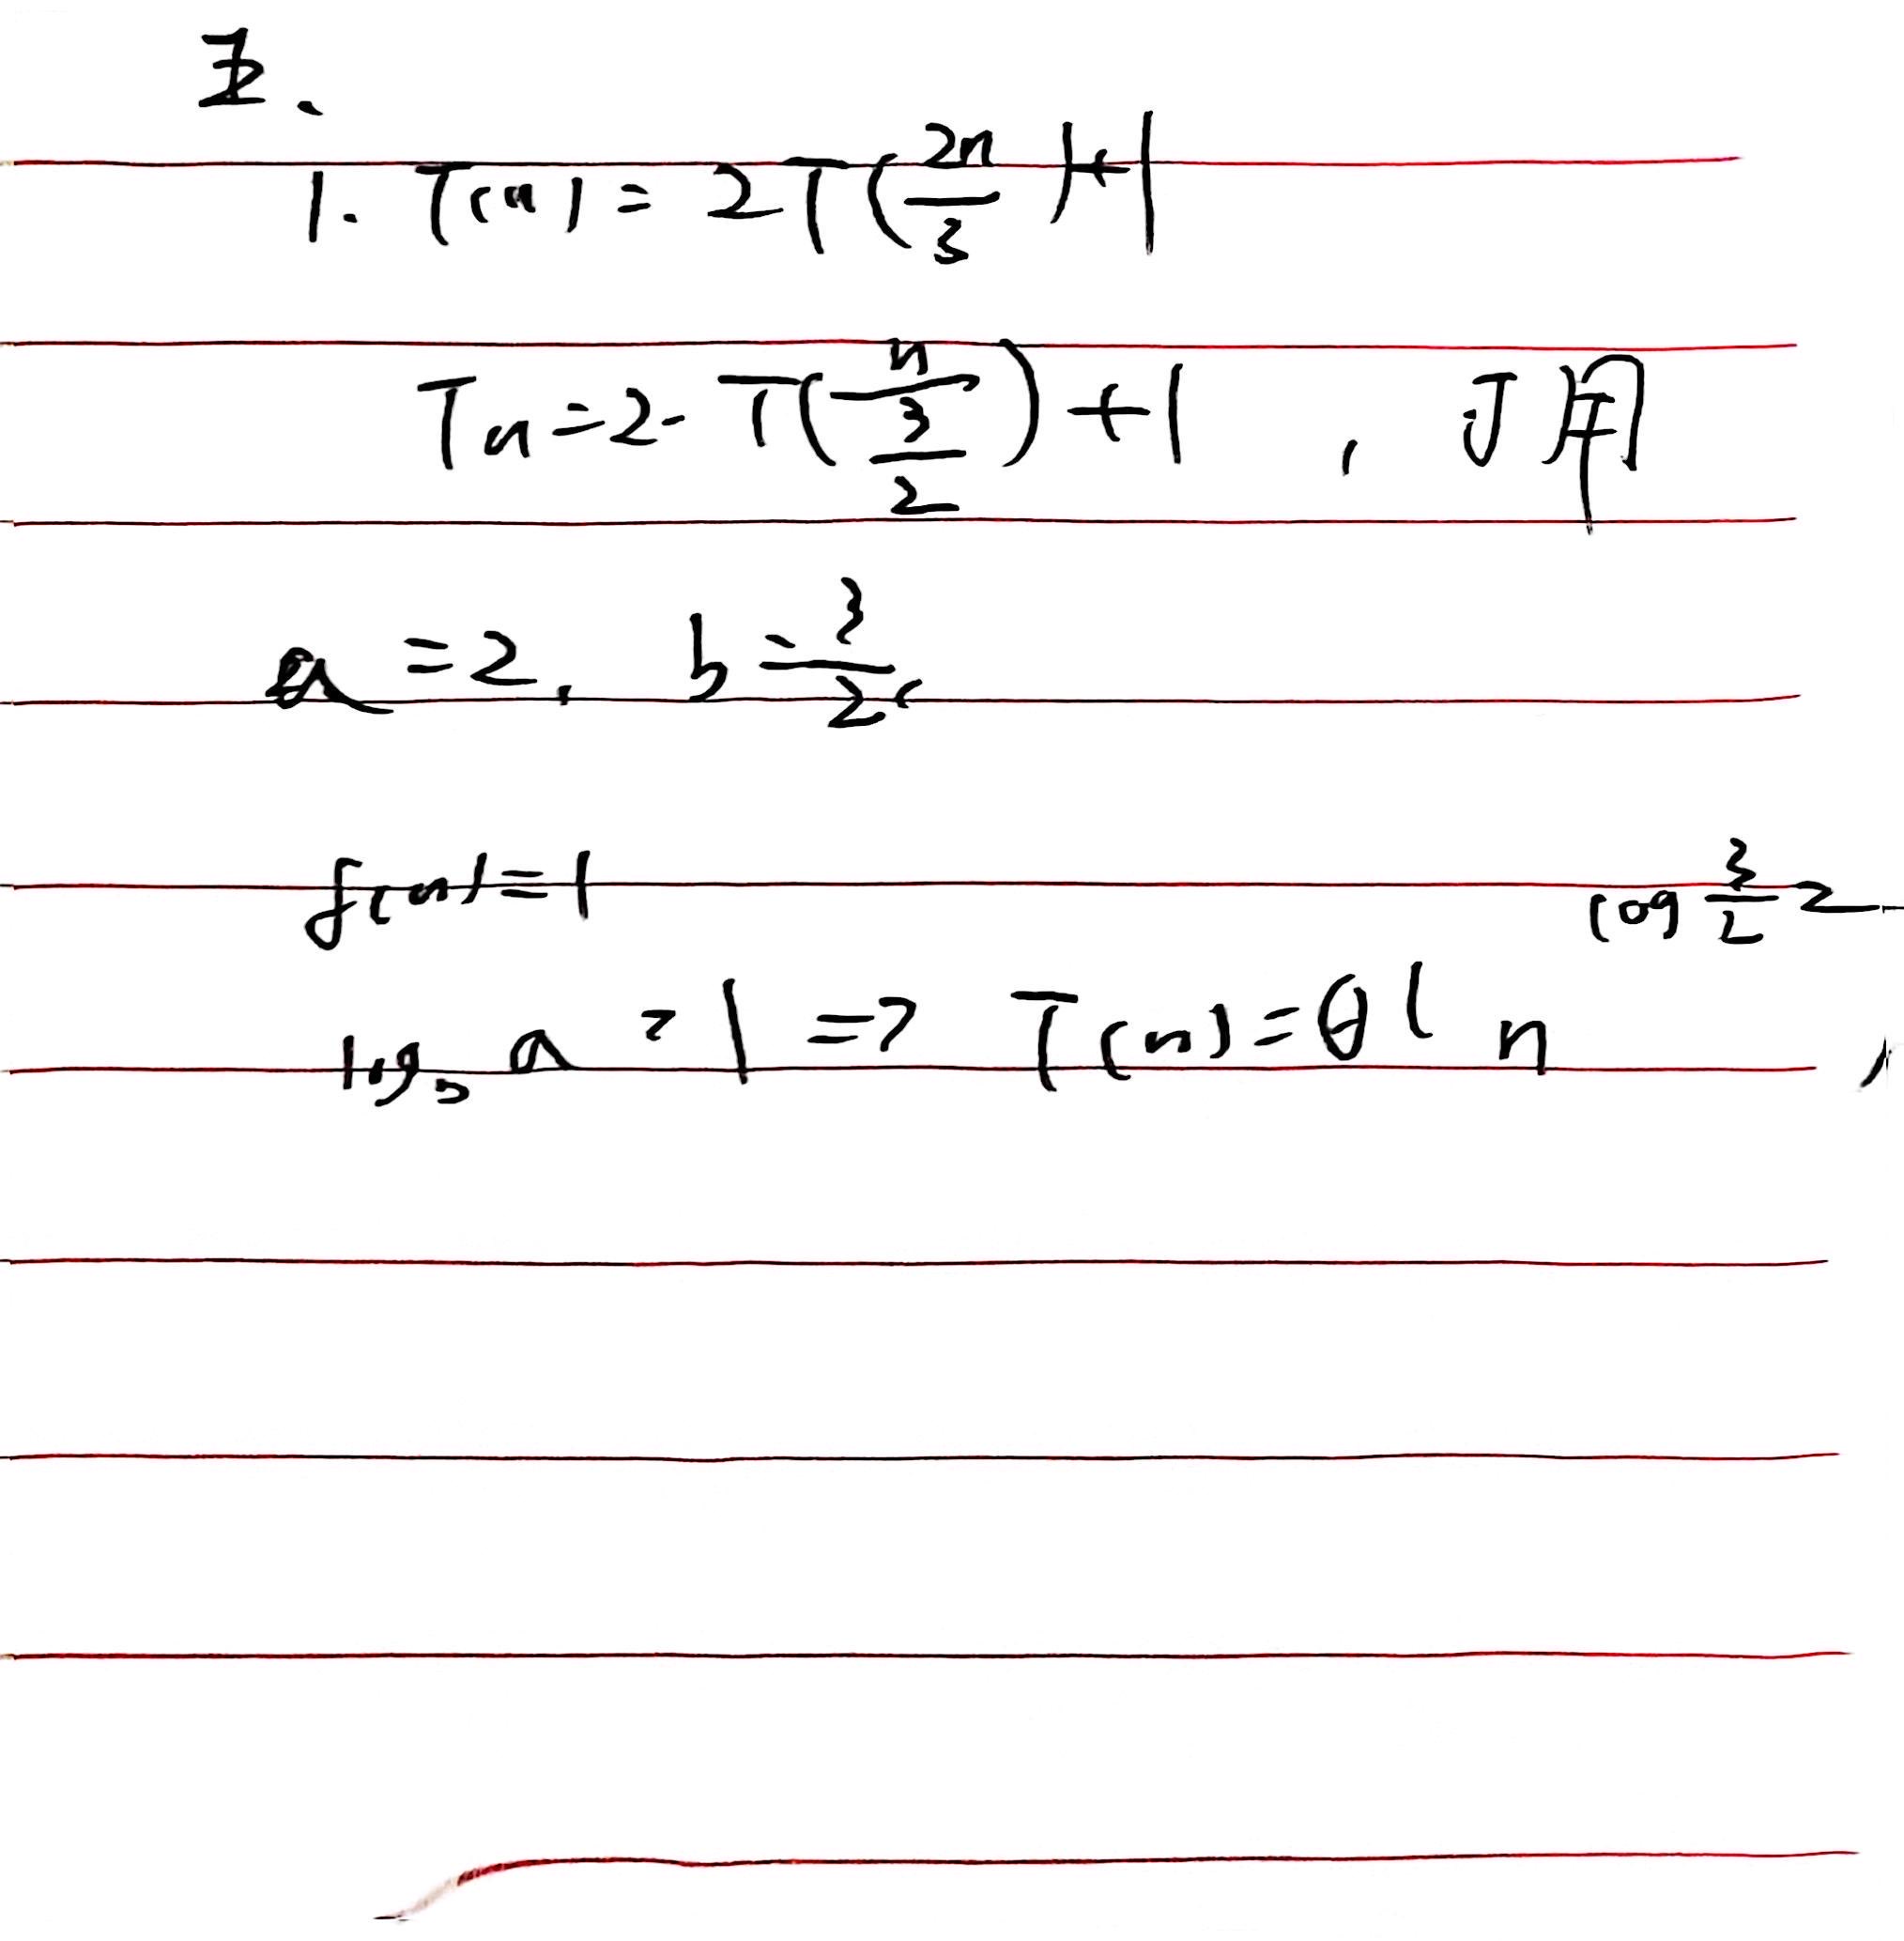 五、
1. T(n) = 2T(\frac{2n}{3})+1
Tn=2·T(\frac{n}{\frac{3}{2}})+1,
a=2, b=\frac{3}{2},
f(n)=1
log_b a > 1 => T(n)=θ( n^{log_{\frac{3}{2}} 2} )